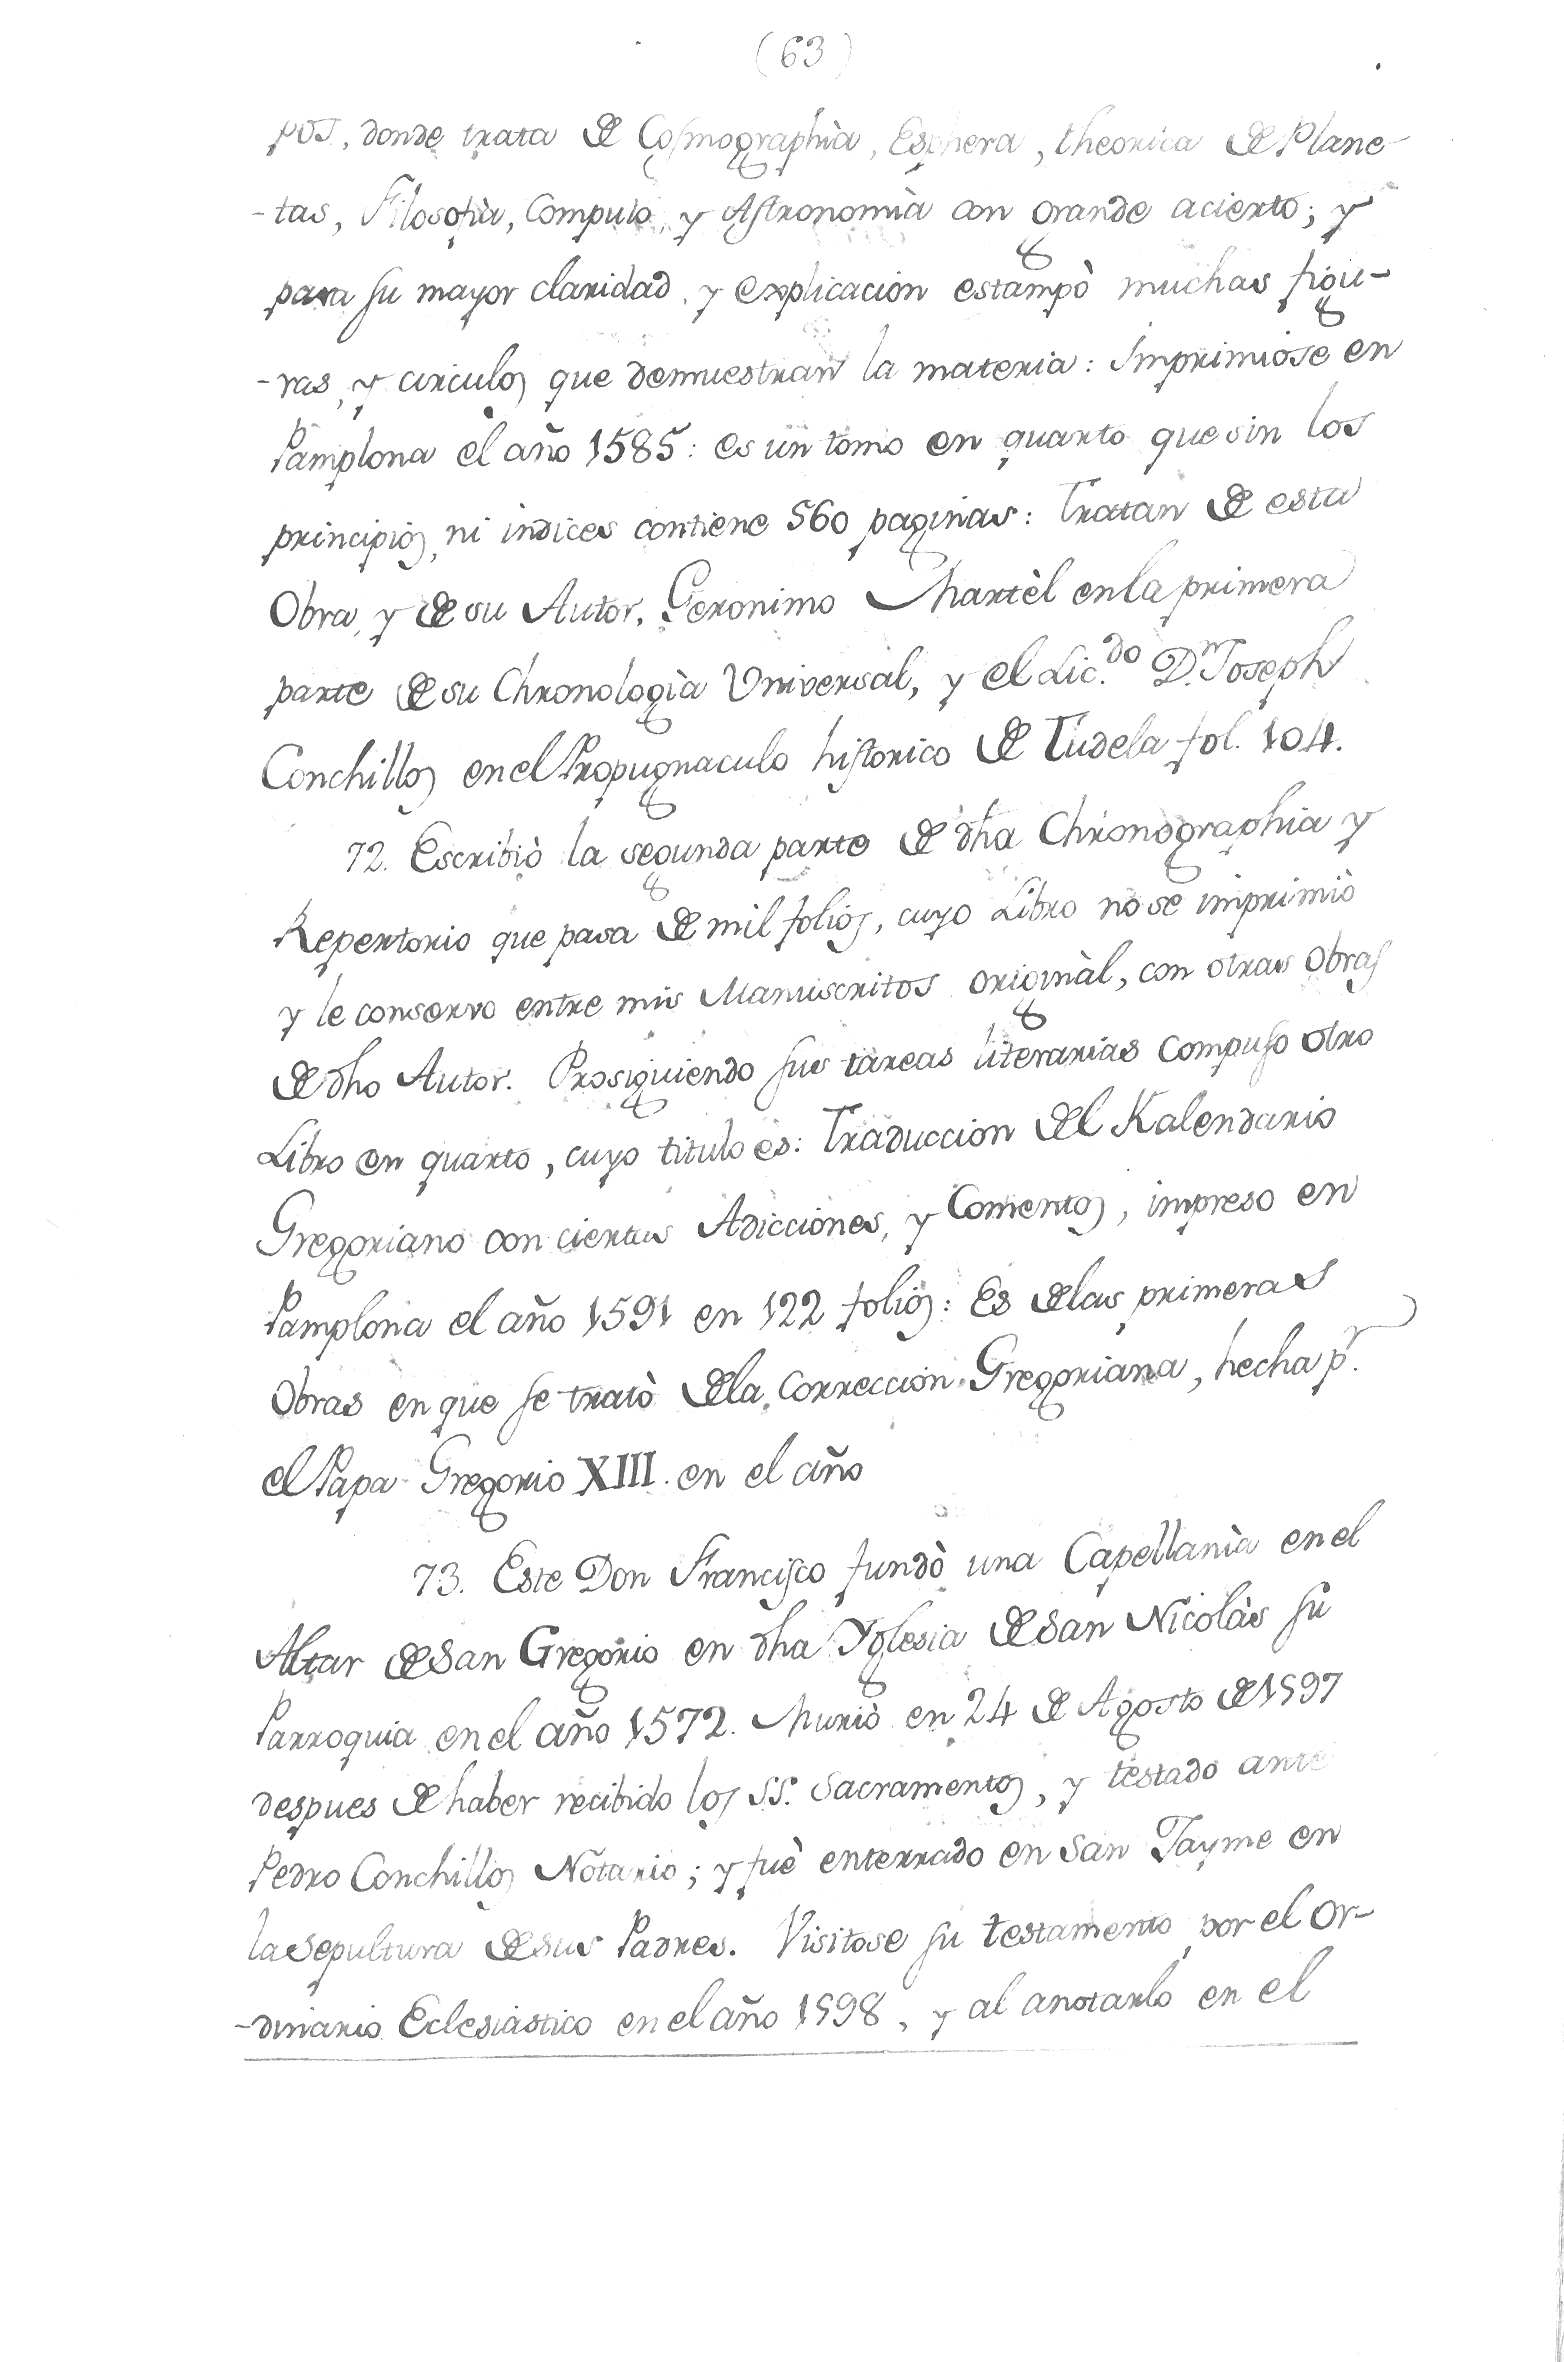 (63)
pos, donde trata de Cosmographìa, Esphera, theorica de Plane-
-tas, Filosofia, Computo, y Astronomìa con grande acierto; y
para su mayor claridad, y explicacion estampò muchas figu-
-ras, y circulos que demuestran la materia: Imprimiose en
Pamplona el año 1585: es un tomo en quarto que sin los
principios, ni indices contiene 560 paginas: Tratan de esta
Obra, y de su Autor, Geronimo Martèl en la primera
parte de su Chronologìa Universal, y el Lic.do D.n Joseph
Conchillos en el Propugnaculo historico de Tudela fol. 104.
72. Escribiò la segunda parte de dha Chronographia y
Repertorio que pasa de mil folios, cuyo Libro no se imprimiò
y le conservo entre mis Manuscritos originàl, con otras Obras
de dho Autor. Prosiguiendo sus tareas literarias compuso otro
Libro en quarto, cuyo titulo es: Traduccion del Kalendario
Gregoriano con ciertas Adicciones, y Comentos, impreso en
Pamplona el año 1591 en 122 folios: Es de las primeras
Obras en que se tratò de la correccion Gregoriana, hecha p.r
el Papa Gregorio XIII. en el año
73. Este Don Francisco fundò una Capellanìa en el
Altar de San Gregorio en dha Yglesia de San Nicolàs su
Parroquia en el año 1572. Muriò en 24 de Agosto de 1597
despues de haber recibido los SS. Sacramentos, y testado ante
Pedro Conchillos Notario; y fuè enterrado en San Jayme en
la Sepultura de sus Padres. Visitose su testamento por el Or-
-dinario Eclesiastico en el año 1598, y al anotarlo en el